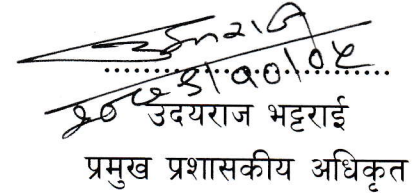 उदयराज
२०७९/१०/०५
उदयराज भट्टराई
प्रमुख प्रशासकीय अधिकृत